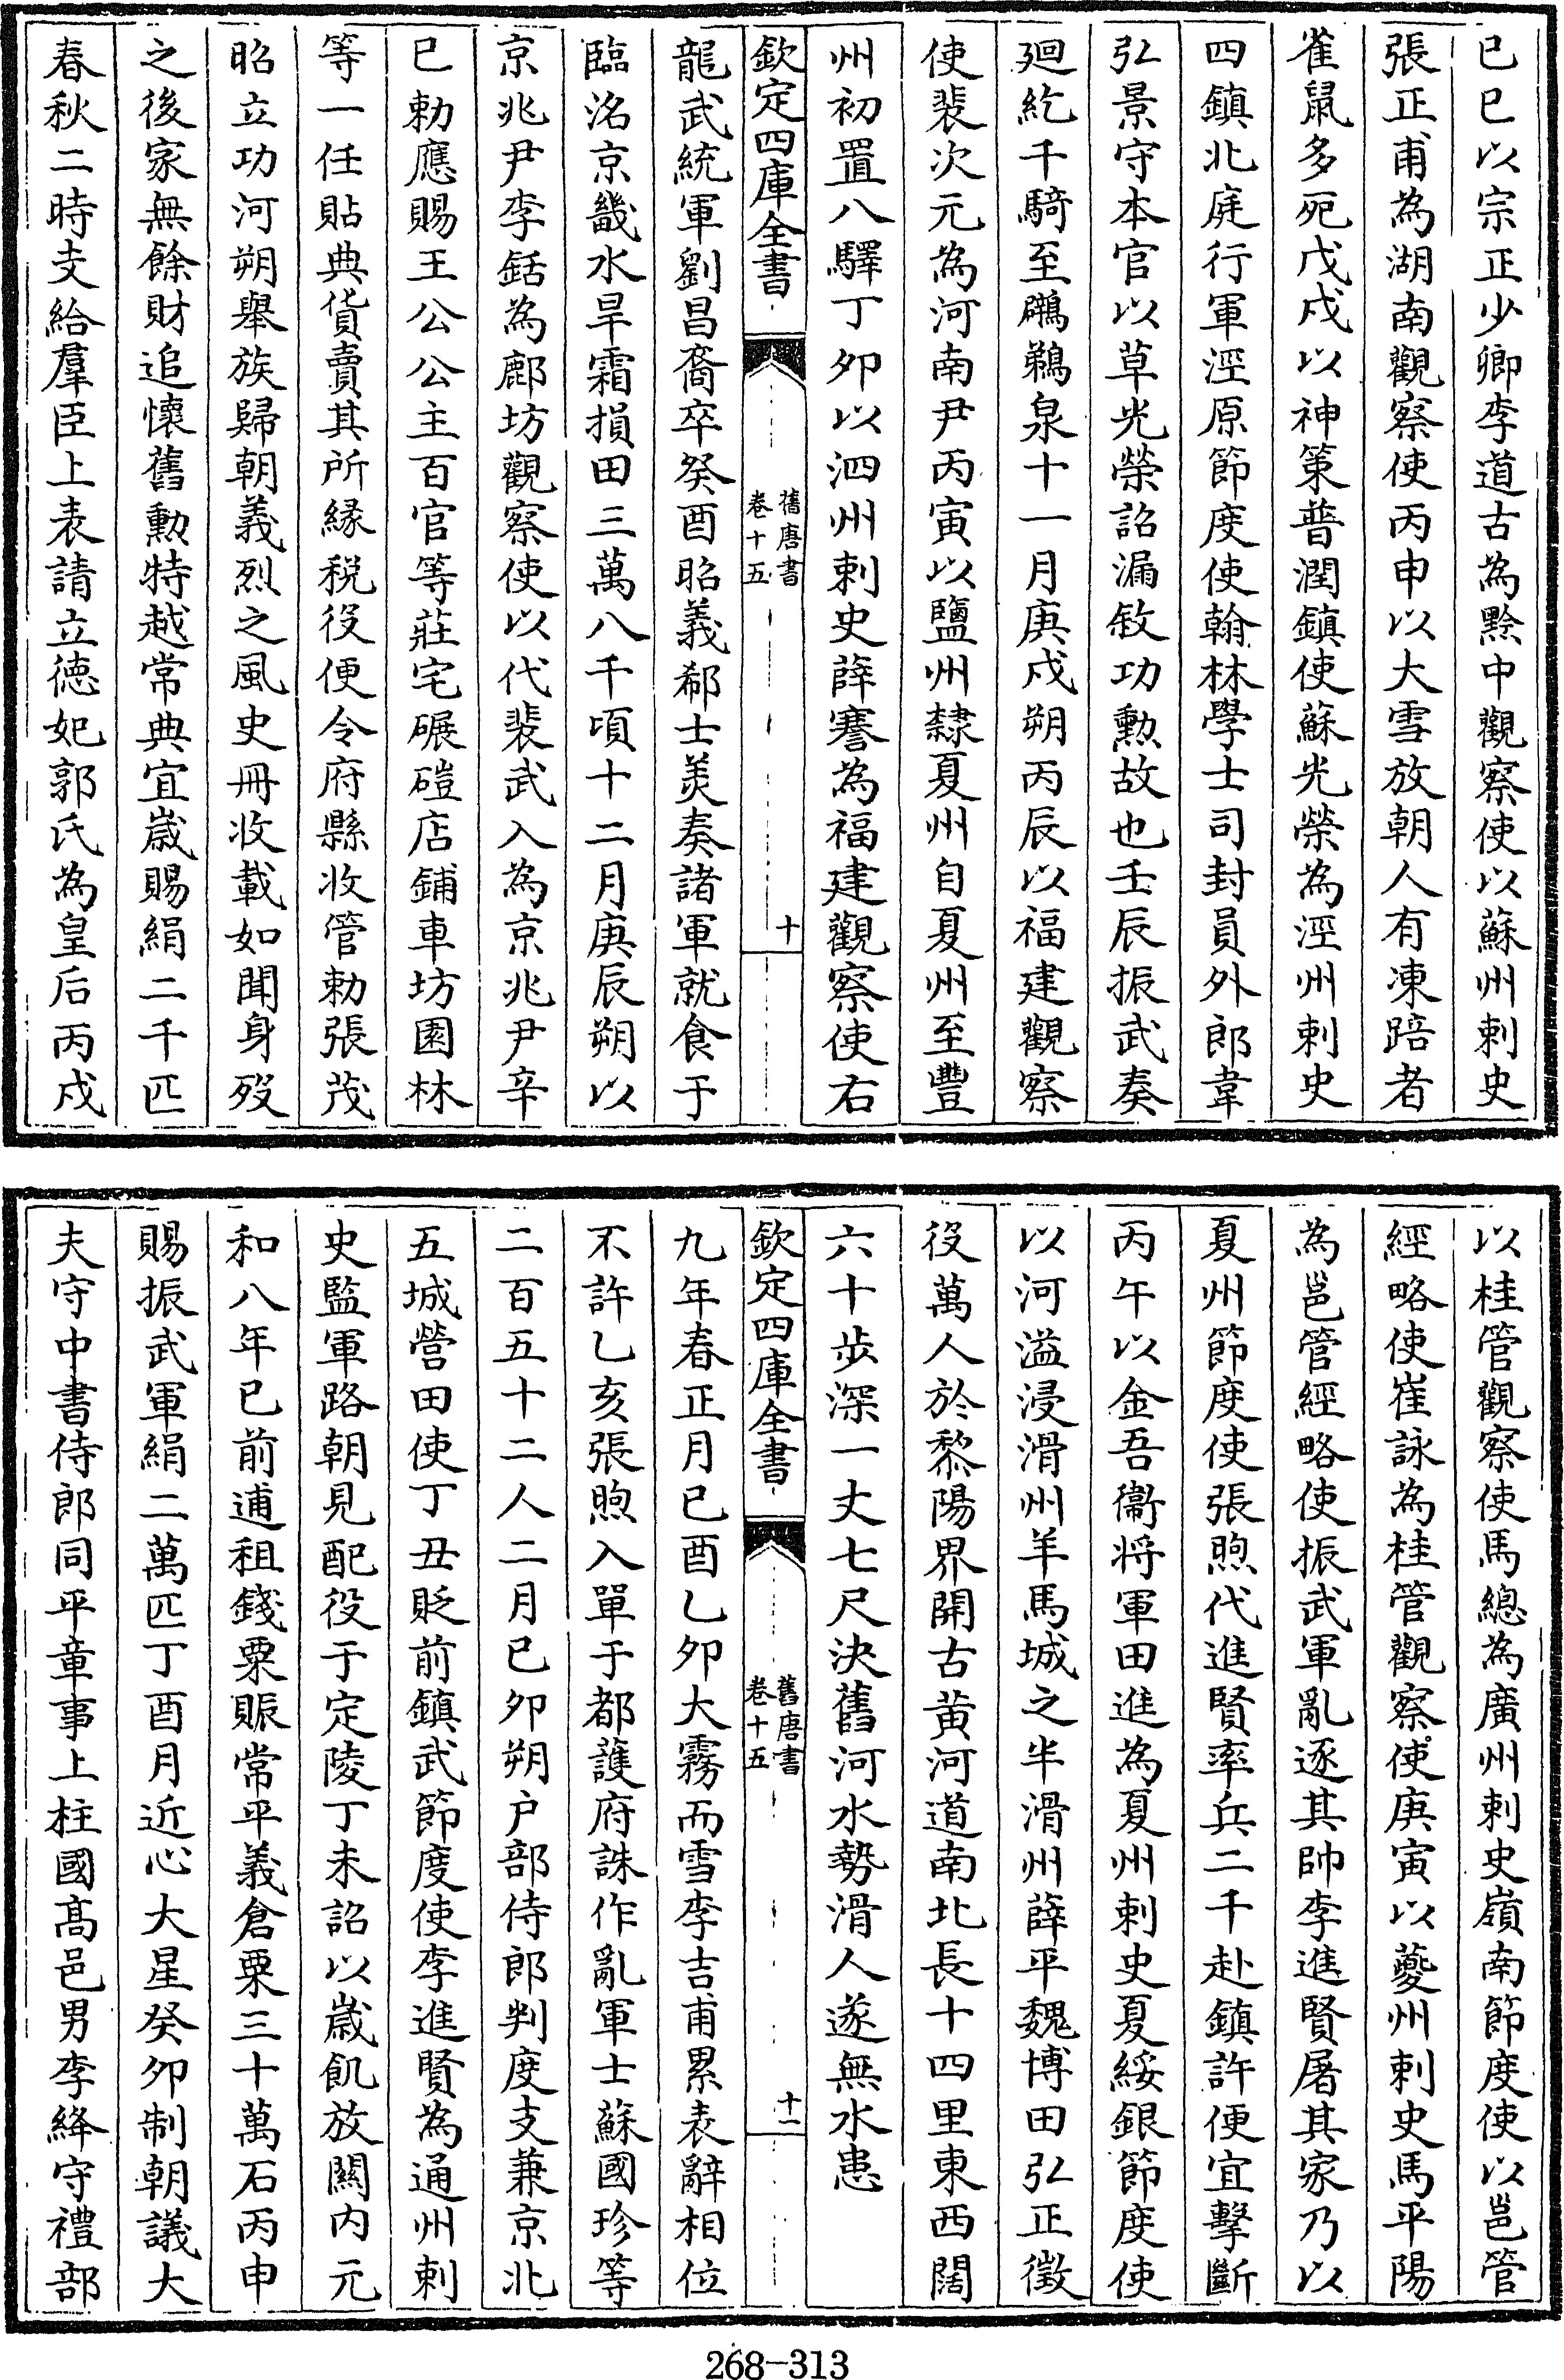 已巳以宗正少卿李道古為黔中觀察使以蘇州刺史
張正甫為湖南觀察使丙申以大雪放朝人有凍踣者
雀鼠多死戊戌以神策普潤鎮使蘇光榮為涇州刺史
四鎮北庭行軍涇原節度使翰林學士司封員外郎韋
弘景守本官以草光榮詔漏敘功勲故也壬辰振武奏
廻紇千騎至鸊鵜泉十一月庚戌朔丙辰以福建觀察
使裴次元為河南尹丙寅以鹽州隸夏州自夏州至豐
州初置八驛丁夘以泗州刺史薛謇為福建觀察使右
欽定四庫全書
舊唐書
卷十五
十
龍武統軍劉昌裔卒癸酉昭義郗士美奏諸軍就食于
臨洺京畿水旱霜損田三萬八千頃十二月庚辰朔以
京兆尹李銛為鄜坊觀察使以代裴武入為京兆尹辛
巳勅應賜王公公主百官等莊宅碾磑店鋪車坊園林
等一任貼典貨賣其所緣稅役便令府縣收管勅張茂
昭立功河朔舉族歸朝義烈之風史冊收載如聞身歿
之後家無餘財追懷舊勲特越常典宜歲賜絹二千匹
春秋二時支給羣臣上表請立德妃郭氏為皇后丙戌
以桂管觀察使馬總為廣州刺史嶺南節度使以邕管
經略使崔詠為桂管觀察使庚寅以蘷州刺史馬平陽
為邕管經略使振武軍亂逐其帥李進賢屠其家乃以
夏州節度使張煦代進賢率兵二千赴鎮許便宜擊斷
丙午以金吾衞將軍田進為夏州刺史夏綏銀節度使
以河溢浸滑州羊馬城之半滑州薛平魏博田弘正徵
役萬人於黎陽界開古黃河道南北長十四里東西闊
六十步深一丈七尺決舊河水勢滑人遂無水患
欽定四庫全書
舊唐書
卷十五
十一
九年春正月已酉乙夘大霧而雪李吉甫累表辭相位
不許乙亥張煦入單于都護府誅作亂軍士蘇國珍等
二百五十二人二月已夘朔户部侍郎判度支兼京北
五城營田使丁丑貶前鎮武節度使李進賢為通州刺
史監軍路朝見配役于定陵丁未詔以歲飢放關內元
和八年已前逋租錢粟賑常平義倉粟三十萬石丙申
賜振武軍絹二萬匹丁酉月近心大星癸夘制朝議大
夫守中書侍郎同平章事上柱國高邑男李絳守禮部
268-313